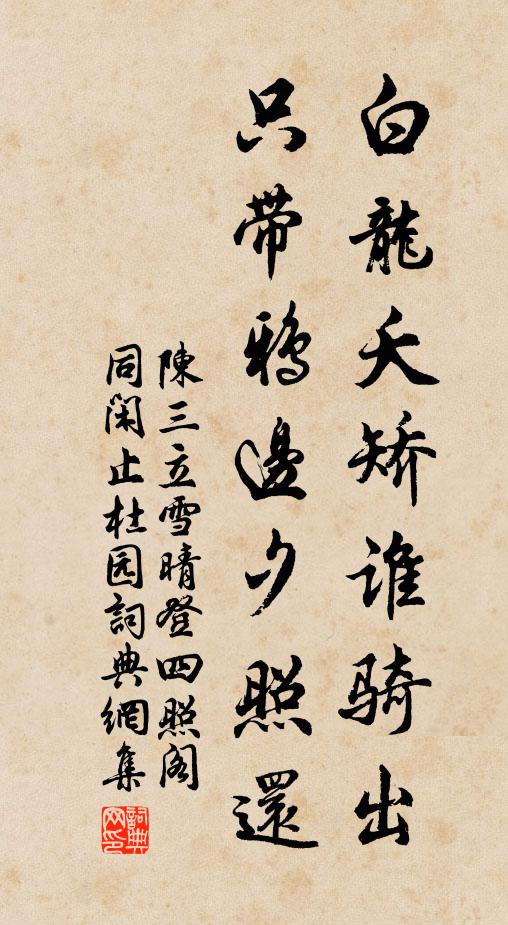 白龍夭矯谁骑出
只带鸦邊夕照還
陳三立雪晴登四照阁
同闲止杜园詞典網集
詞典网印